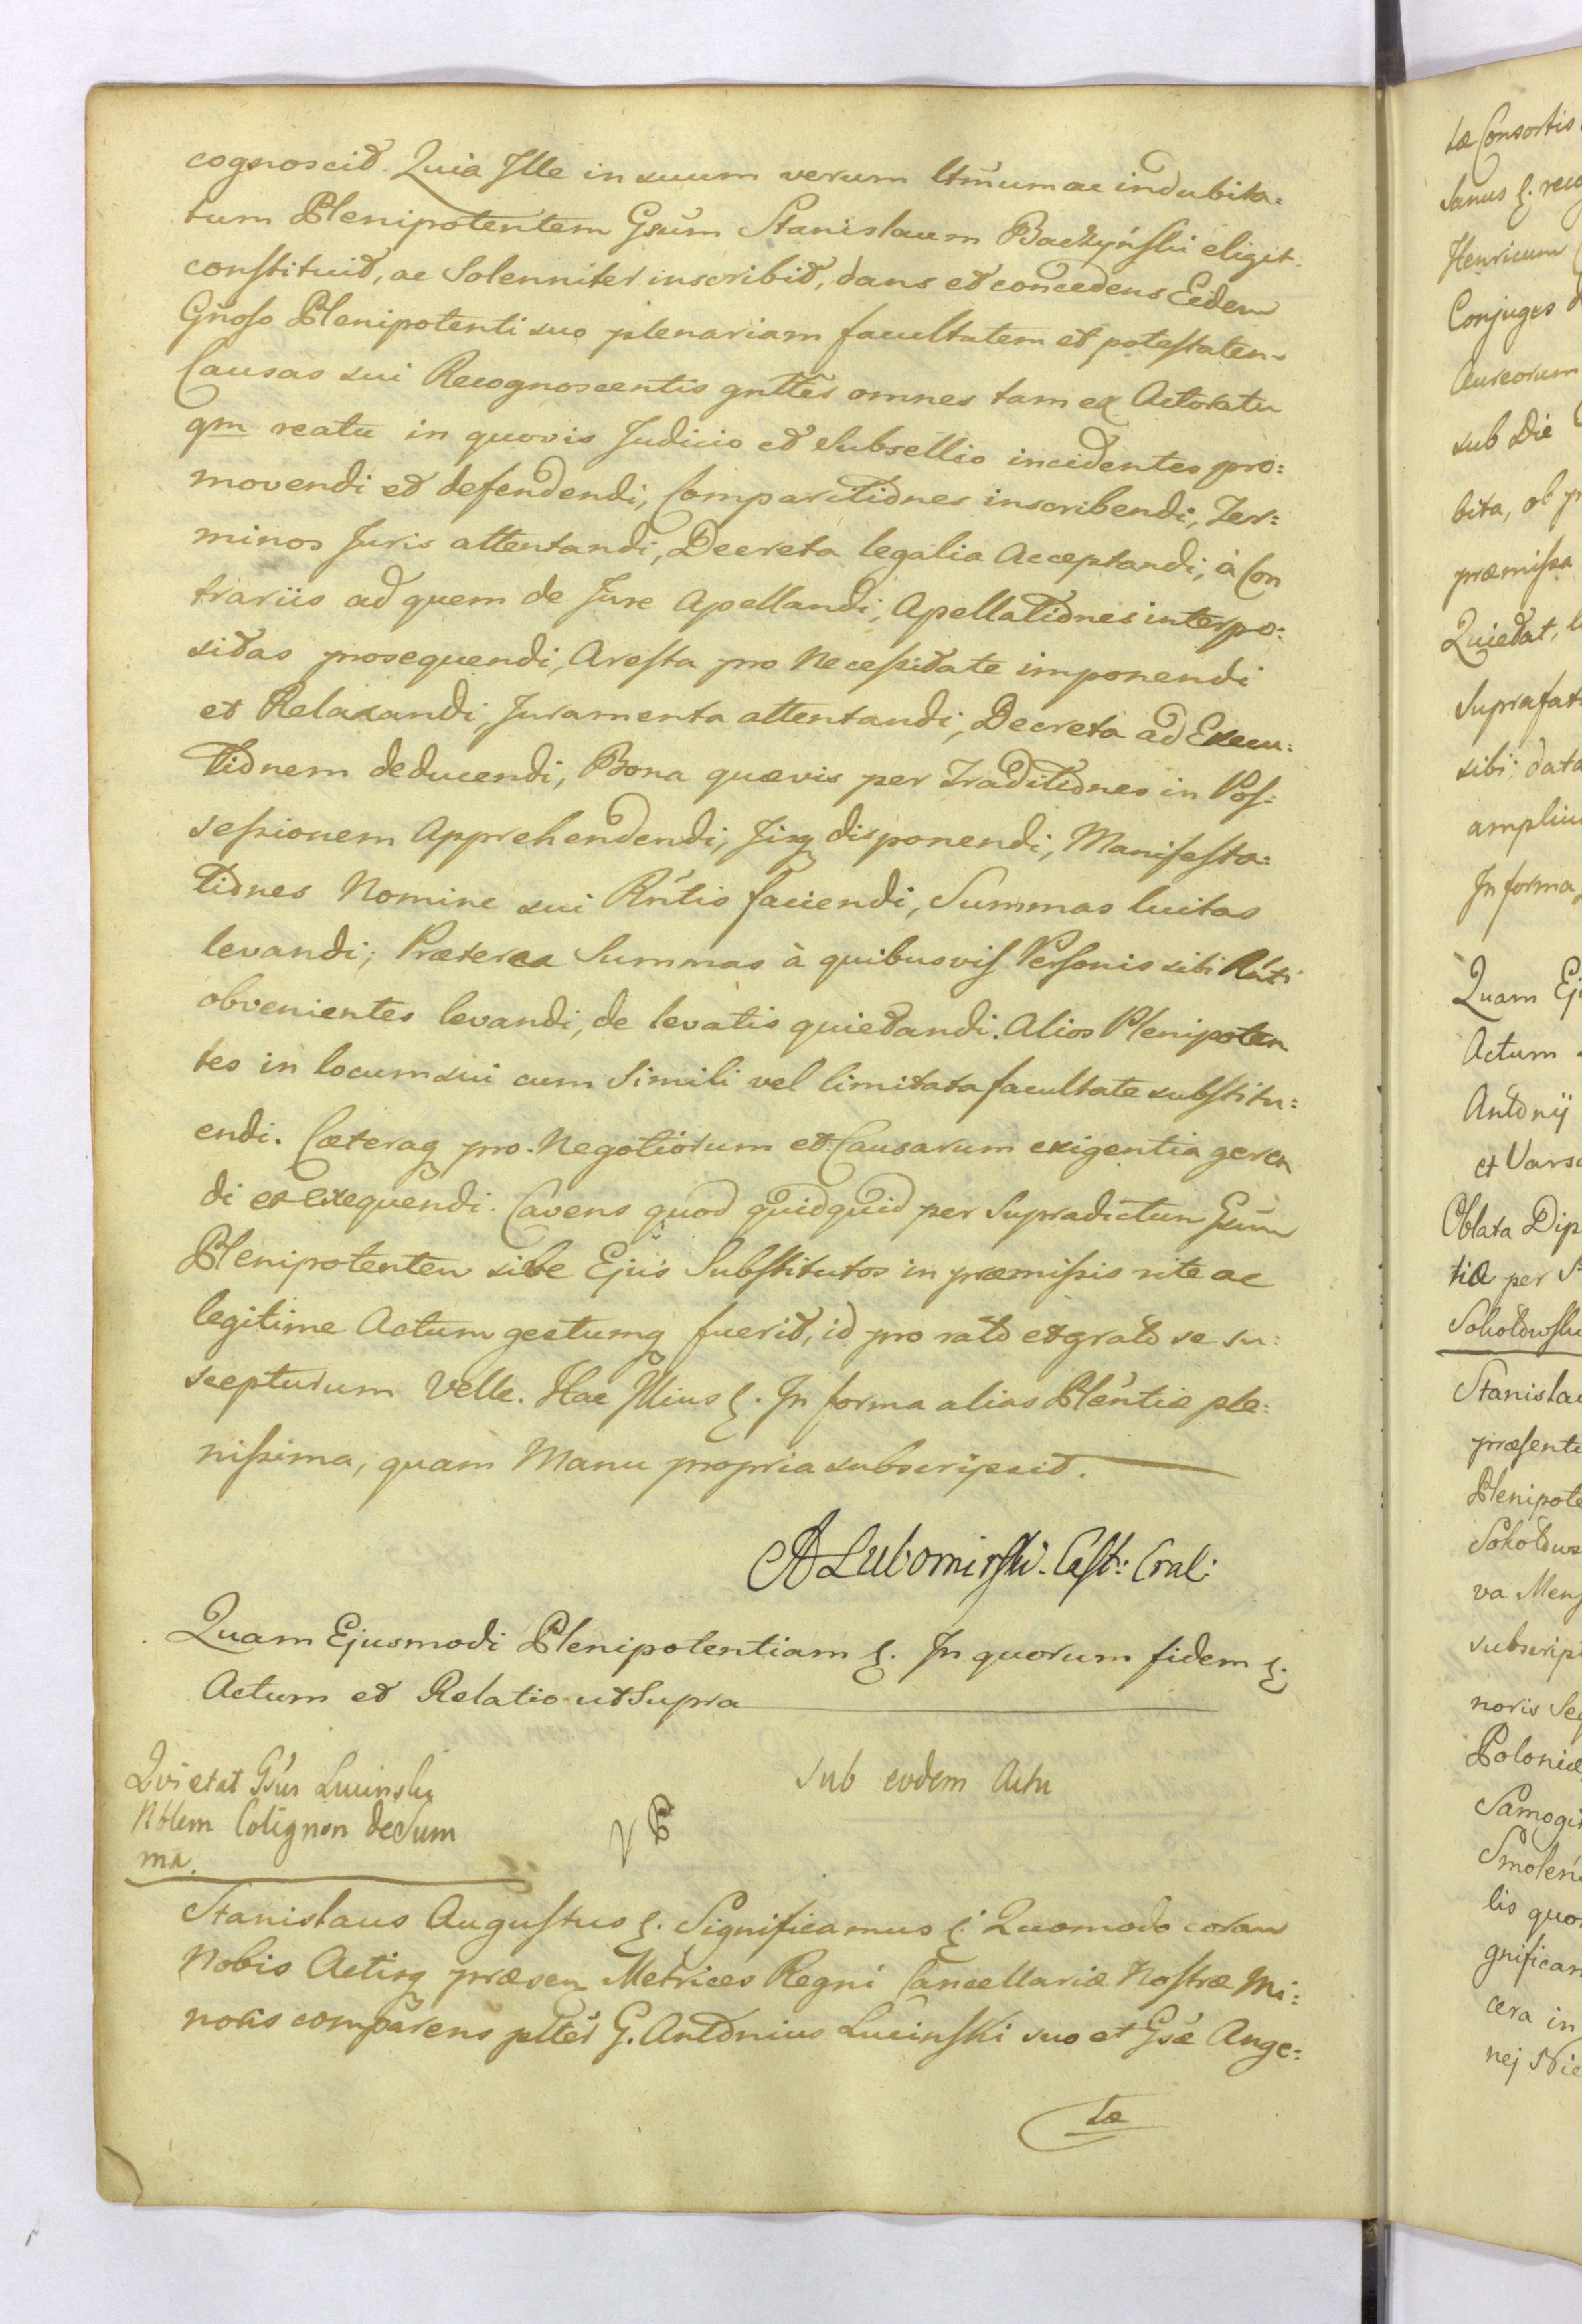 cognoscit. Quia Ille in suum verum ltmum ac indubita:
tum Plenipotentem Gsum Stanislaum Baczyński eligit.
constituit, ac Solenniter inscribit, dans et concedens Eidem
Gñoso Plenipotenti suo plenariam facultatem et potestatem
Causas sui Recognoscentis gnltes omnes tam ex Actoratu
qm reatu in quovis Judicio et Subsellio incidentes pro:
movendi et defendendi, Comparitiones inscribendi, Ter:
minos Juris attentandi, Decreta legalia Acceptandi, à Con
trariis ad quem de Jure Apellandi, Apellationes interpo:
sitas prosequendi, Aresta pro Necessitate imponendi
et Relaxandi, Juramenta attentandi, Decreta ad Execu:
tionem deducendi, Bona quævis per Traditiones in Pos:
sessionem Apprehendendi, Jisq disponendi, Manifesta:
tiones Nomine sui Rntis faciendi, Summas luitas
levandi; Præterea Summas à quibusvis Personis sibi Rnti
obvenientes levandi, de levatis quietandi. Alios Plenipoten
tes in locum sui cum Simili vel limitata facultate substitu:
endi. Cæteraq pro Negotiorum et Causarum exigentia geren
di et exequendi. Cavens quod quidquid per Supradictum Gsum
Plenipotentem sive Ejus Substitutos in præmissis rite ac
legitime Actum gestumq fuerit, id pro rato et grato se su:
scepturum Velle. Hac Illius &. In forma alias Plentiæ ple:
nissima, quam Manu propria subscripsit.
A Lubomirski. Cast: Cral:
Quam Ejusmodi Plenipotentiam &. In quorum fidem &.
Actum et Relatio ut Supra
Quietat Gsus Lucinski
Nblem Colignon de Sum
ma.
Sub eodem Actu
Stanislaus Augustus &. Significamus &. Quomodo coram
Nobis Actisq præsen Metrices Regni Cancellariæ Nostræ Mi:
noris comparens plter G. Antonius Lucinski suo et Gsæ Ange:
læ
tæ Consortis
Henricum
Conjuges
Aureorum
sub Die
bita, ob
præmissa
Quietat,
sibi data
In forma
Quam
Actum
Antonij
et
Oblata
tiæ per
Stanislaus
Plenipote
subscrip
noris
Poloniæ
gnifican